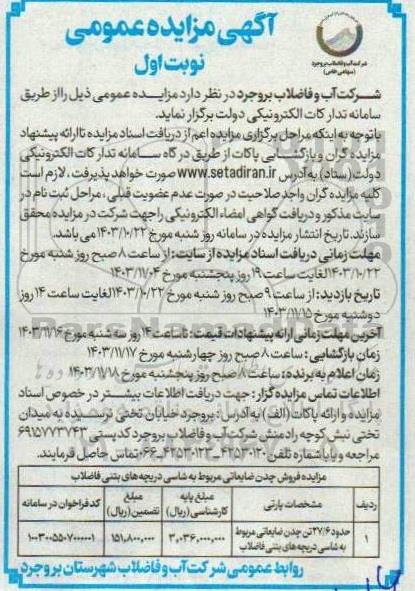 آگهی مزایده عمومی
نوبت اول
شرکت آب و فاضلاب بروجرد
(سهامی خاص)
شرکت آب و فاضلاب بروجرد در نظر دارد مزایده عمومی ذیل را از طریق
سامانه تدارکات الکترونیکی دولت برگزار نماید.
با توجه به اینکه مراحل برگزاری مزایده اعم از دریافت اسناد مزایده تا ارائه پیشنهاد
مزایده گران و بازگشایی پاکات از طریق درگاه سامانه تدارکات الکترونیکی
دولت (ستاد) به آدرس www.setadiran.ir صورت خواهد پذیرفت، لازم است
کلیه مزایده گران واجد صلاحیت در صورت عدم عضویت قبلی، مراحل ثبت نام در
سایت مذکور و دریافت گواهی امضاء الکترونیکی را جهت شرکت در مزایده محقق
سازند. تاریخ انتشار مزایده در سامانه روز شنبه مورخ ۱۴۰۳/۱۰/۲۲ می باشد.
مهلت زمانی دریافت اسناد مزایده از سایت: از ساعت ۸ صبح روز شنبه مورخ
۱۴۰۳/۱۰/۲۲ لغایت ساعت ۱۹ روز پنجشنبه مورخ ۱۴۰۳/۱۱/۰۴
تاریخ بازدید: از ساعت ۹ صبح روز شنبه مورخ ۱۴۰۳/۱۰/۲۲ لغایت ساعت ۱۴ روز
دوشنبه مورخ ۱۴۰۳/۱۱/۱۵
آخرین مهلت زمانی ارائه پیشنهادات قیمت: تا ساعت ۱۴ روز سه شنبه مورخ ۱۴۰۳/۱۱/۱۶
زمان بازگشایی: ساعت ۸ صبح روز چهارشنبه مورخ ۱۴۰۳/۱۱/۱۷
زمان اعلام به برنده: ساعت ۸ صبح روز پنجشنبه مورخ ۱۴۰۳/۱۱/۱۸
اطلاعات تماس مزایده گزار: جهت دریافت اطلاعات بیشتر در خصوص اسناد
مزایده و ارائه پاکات (الف) به آدرس: بروجرد خیابان تختی نرسیده به میدان
تختی نبش کوچه رادمنش شرکت آب و فاضلاب بروجرد کد پستی ۶۹۱۵۷۷۳۷۴۶
مراجعه و یا با شماره تلفن ۴۲۵۳۰۱۲۰_۴۲۵۳۰۱۲۳_۰۶۶ تماس حاصل فرمایند.
مزایده فروش چدن ضایعاتی مربوط به شاسی دریچه های بتنی فاضلاب
ردیف مشخصات پارتی مبلغ پایه کارشناسی (ریال) مبلغ تضمین (ریال) کد فراخوان در سامانه
۱ حدود ۲۷/۶ تن چدن ضایعاتی مربوط به شاسی دریچه های بتنی فاضلاب ۳,۰۳۶,۰۰۰,۰۰۰ ۱۵۱,۸۰۰,۰۰۰ ۱۰۰۳۰۰۵۵۰۷۰۰۰۰۰۱
روابط عمومی شرکت آب و فاضلاب شهرستان بروجرد